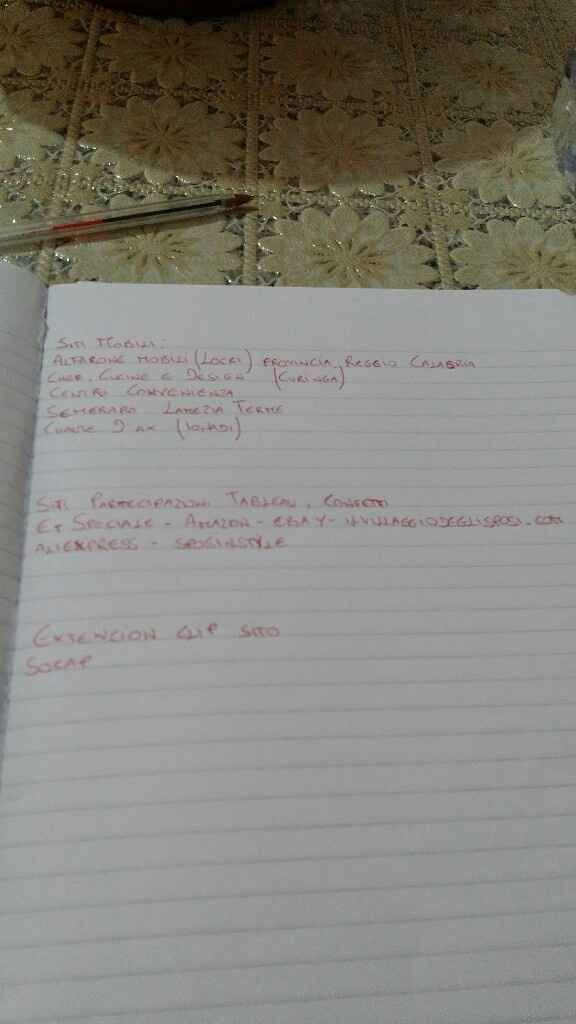 SITI MOBILI:
ALTARONE MOBILI (LOCRI) PROVINCIA REGGIO CALABRIA
CUCINE E DESIGN (CURINGA)
CENTRO CONVENIENZA
SEMERARO LAMEZIA TERME
D'AX (IONADI)
SITI PARTECIPAZIONI TABLEAU, CONFETTI
SPECIALE - AMAZON - EBAY - ILVILLAGGIODEGLISPOSI.COM
ALIEXPRESS - SPOSINSTYLE
EXTENCION CLIP SITO
SOCAP